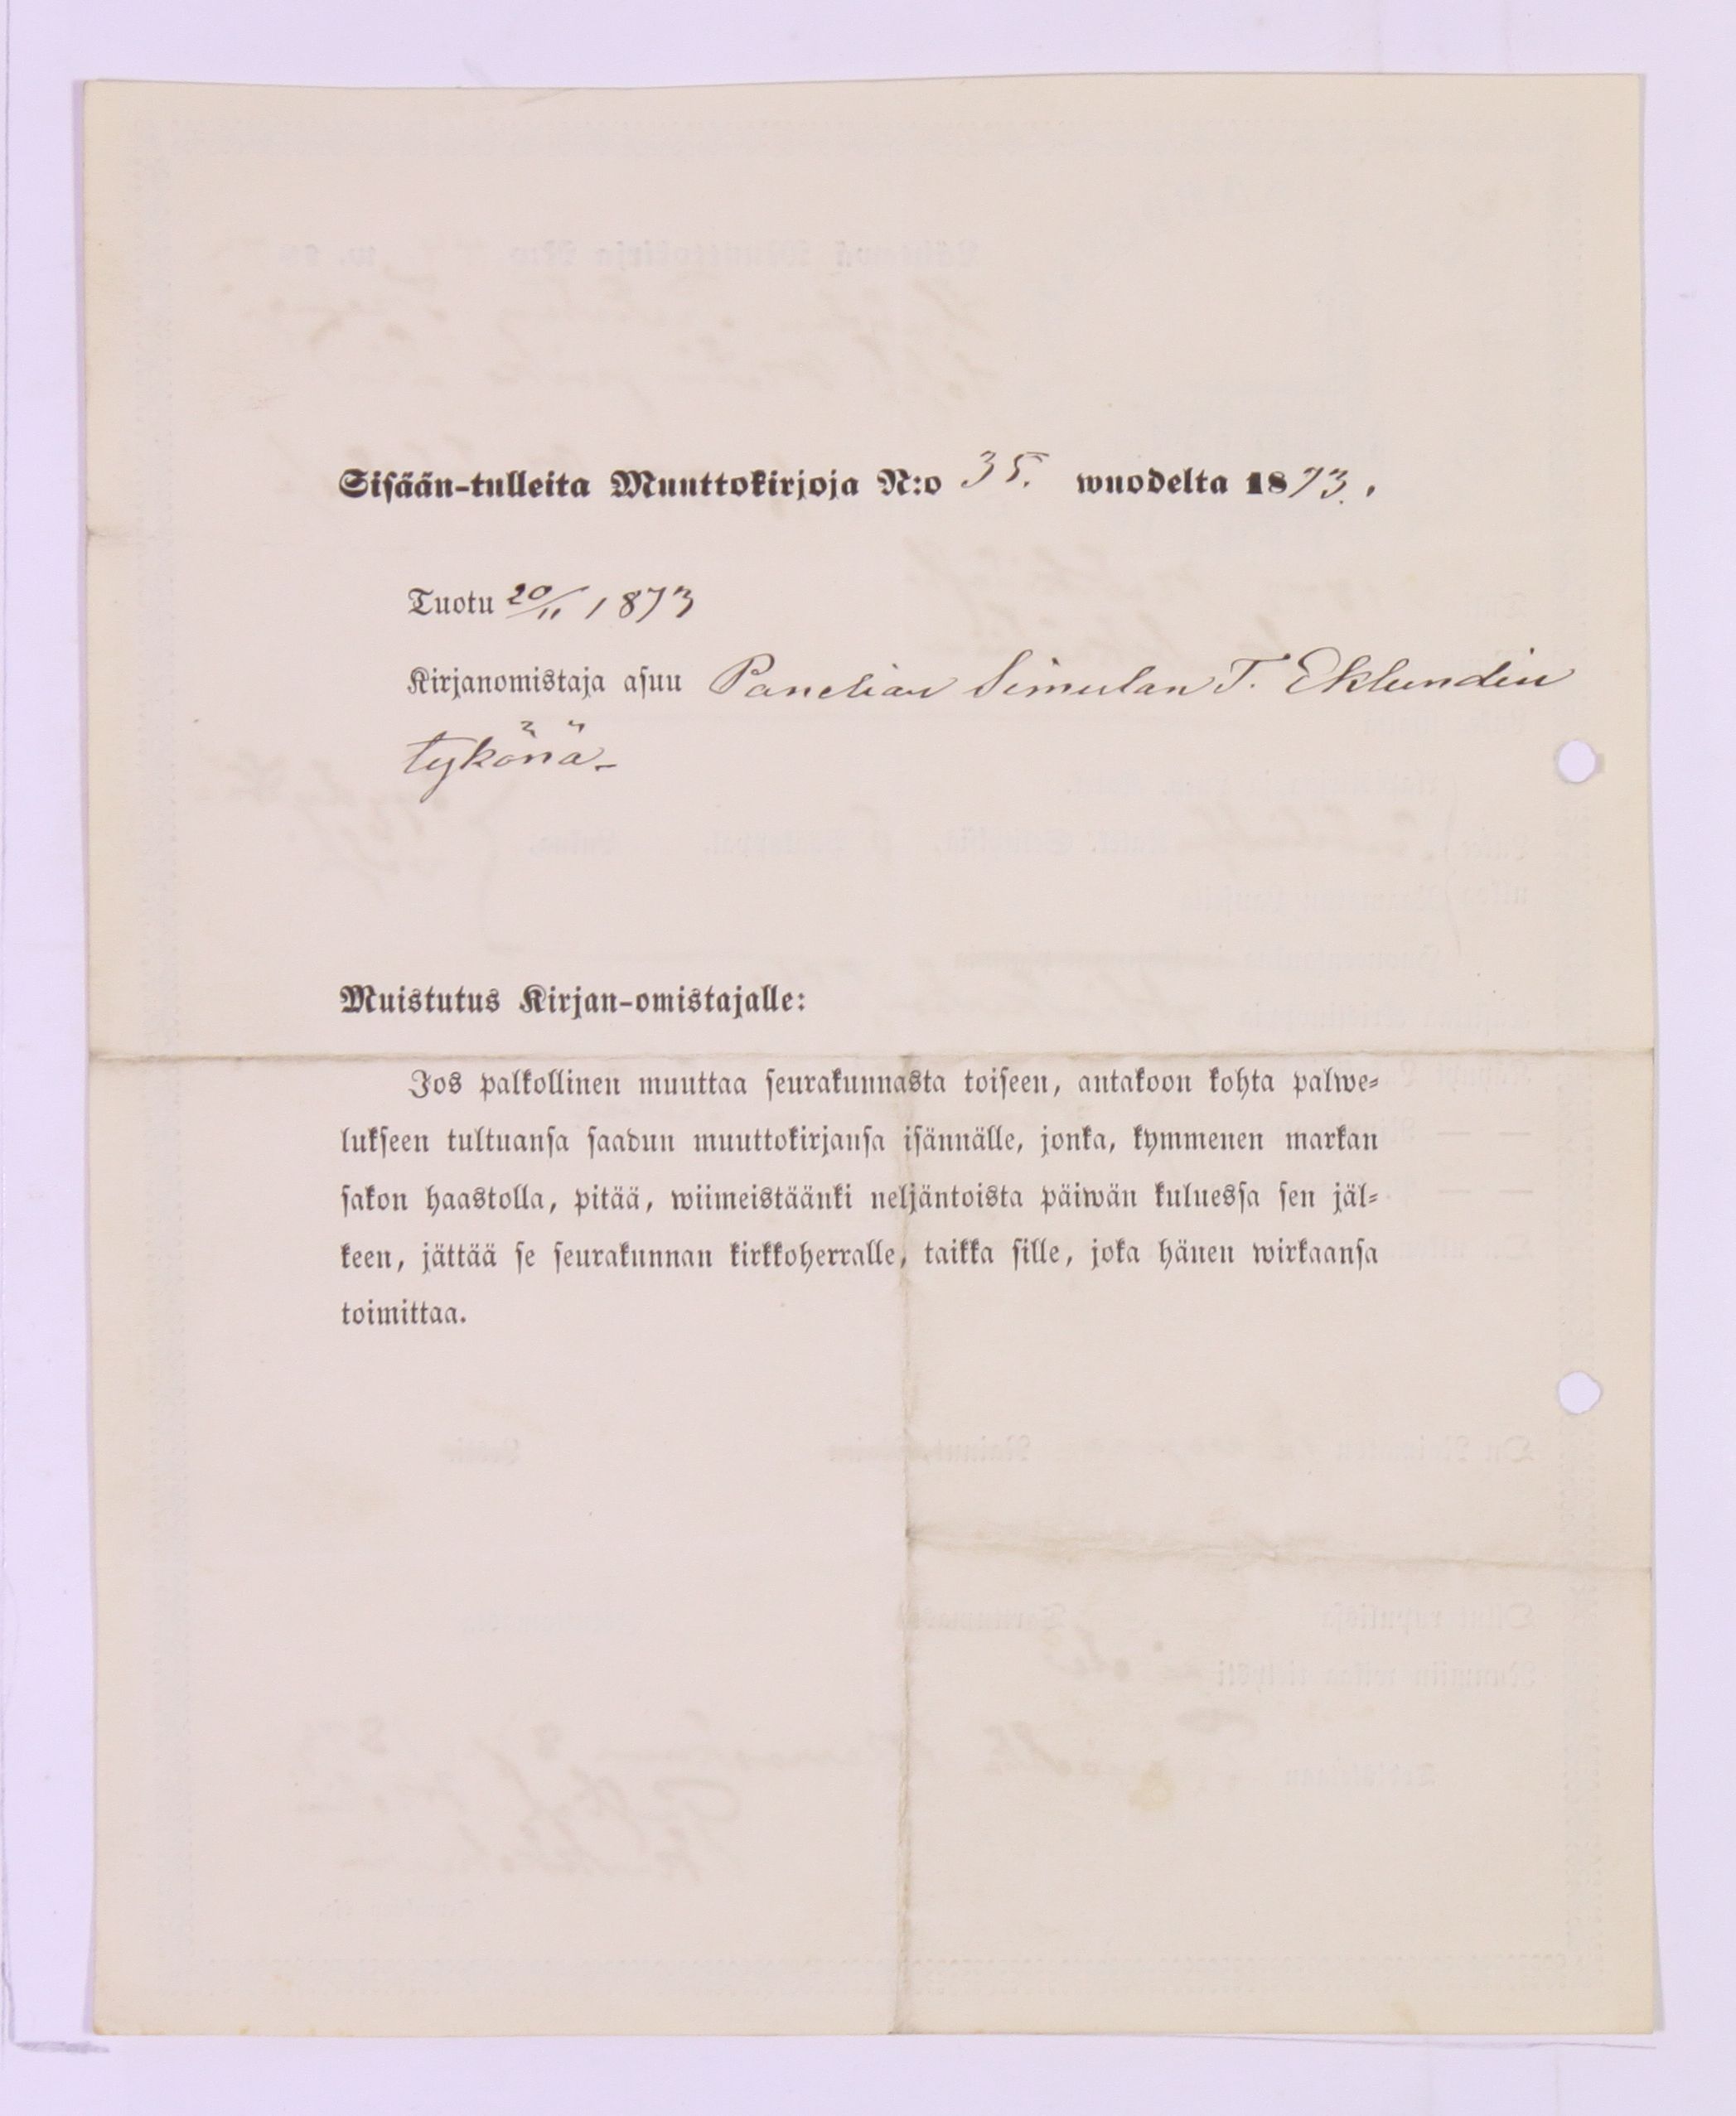 Sisään-tulleita Muuttokirjoja N:o 35. wuodelta 1873.,
Tuotu 20/11 1873
Kirjanomistaja asuu Panelian Simulan T. Eklundin
tykönä
Muistutus Kirjan-omistajalle:
Jos palkollinen muuttaa seurakunnasta toiseen, antakoon kohta palwe-
lukseen tultuansa saadun muuttokirjansa isännälle, jonka, kymmenen markan
sakon haastolla, pitää, wiimeistäänki neljäntoista päiwän kuluessa sen jäl-
keen, jättää se seurakunnan kirkkoherralle, taikka sille, joka hänen wirkaansa
toimittaa.